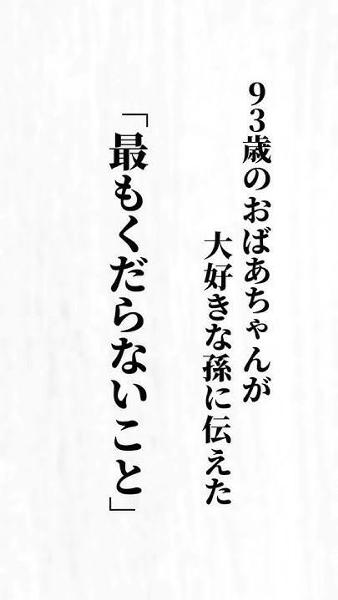 93歳のおばあちゃんが
大好きな孫に伝えた
「最もくだらないこと」